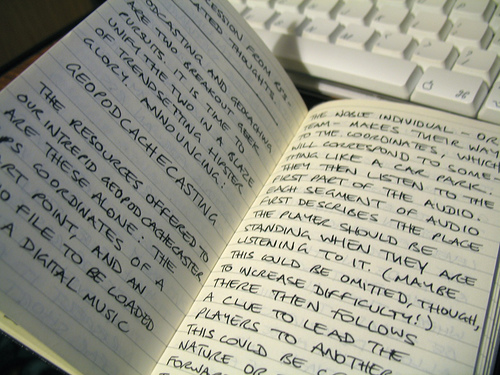 CESSION FROM RSS-
ATED THOUGHTS...
ODCASTING AND GEOCACHING
ARE TWO BREAKOUT GEEK
PURSUITS. IT IS TIME TO
UNIFY THE TWO IN A BLAZE
OF TRENDSETTING, HIPSTER
GLORY. ANNOUNCING:
GEOPODCACHECASTING
THE RESOURCES OFFERED TO
OUR INTREPID GEOPODCACHECASTER
ARE THESE ALONE: THE
PS COORDINATES OF A
RT POINT, AND AN
O FILE TO BE LOADED
A DIGITAL MUSIC
THE NOBLE INDIVIDUAL - OR
TEAM - MAKES THEIR WAY
TO THE COORDINATES, WHICH
WILL CORRESPOND TO SOME-
THING LIKE A CAR PARK.
THEY THEN LISTEN TO THE
FIRST PART OF THE AUDIO.
EACH SEGMENT OF AUDIO
FIRST DESCRIBES THE PLACE
THE PLAYER SHOULD BE
STANDING WHEN THEY ARE
LISTENING TO IT. (MAYBE
THIS COULD BE OMITTED, THOUGH,
TO INCREASE DIFFICULTY!)
THERE THEN FOLLOWS
A CLUE TO LEAD THE
PLAYERS TO ANOTHER
THIS COULD BE
NATURE OR
FORWAR